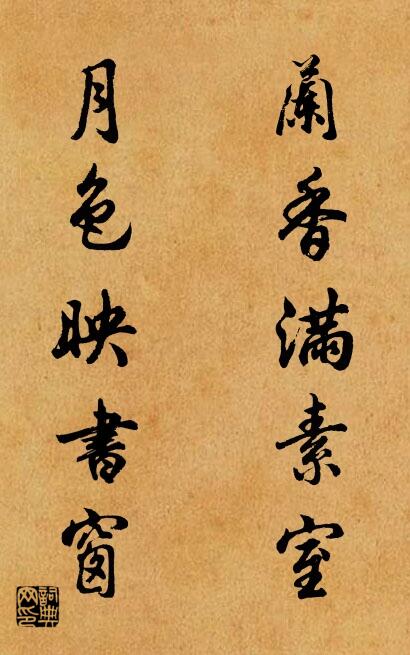 蘭香滿素室
月色映書窗
詞典網印